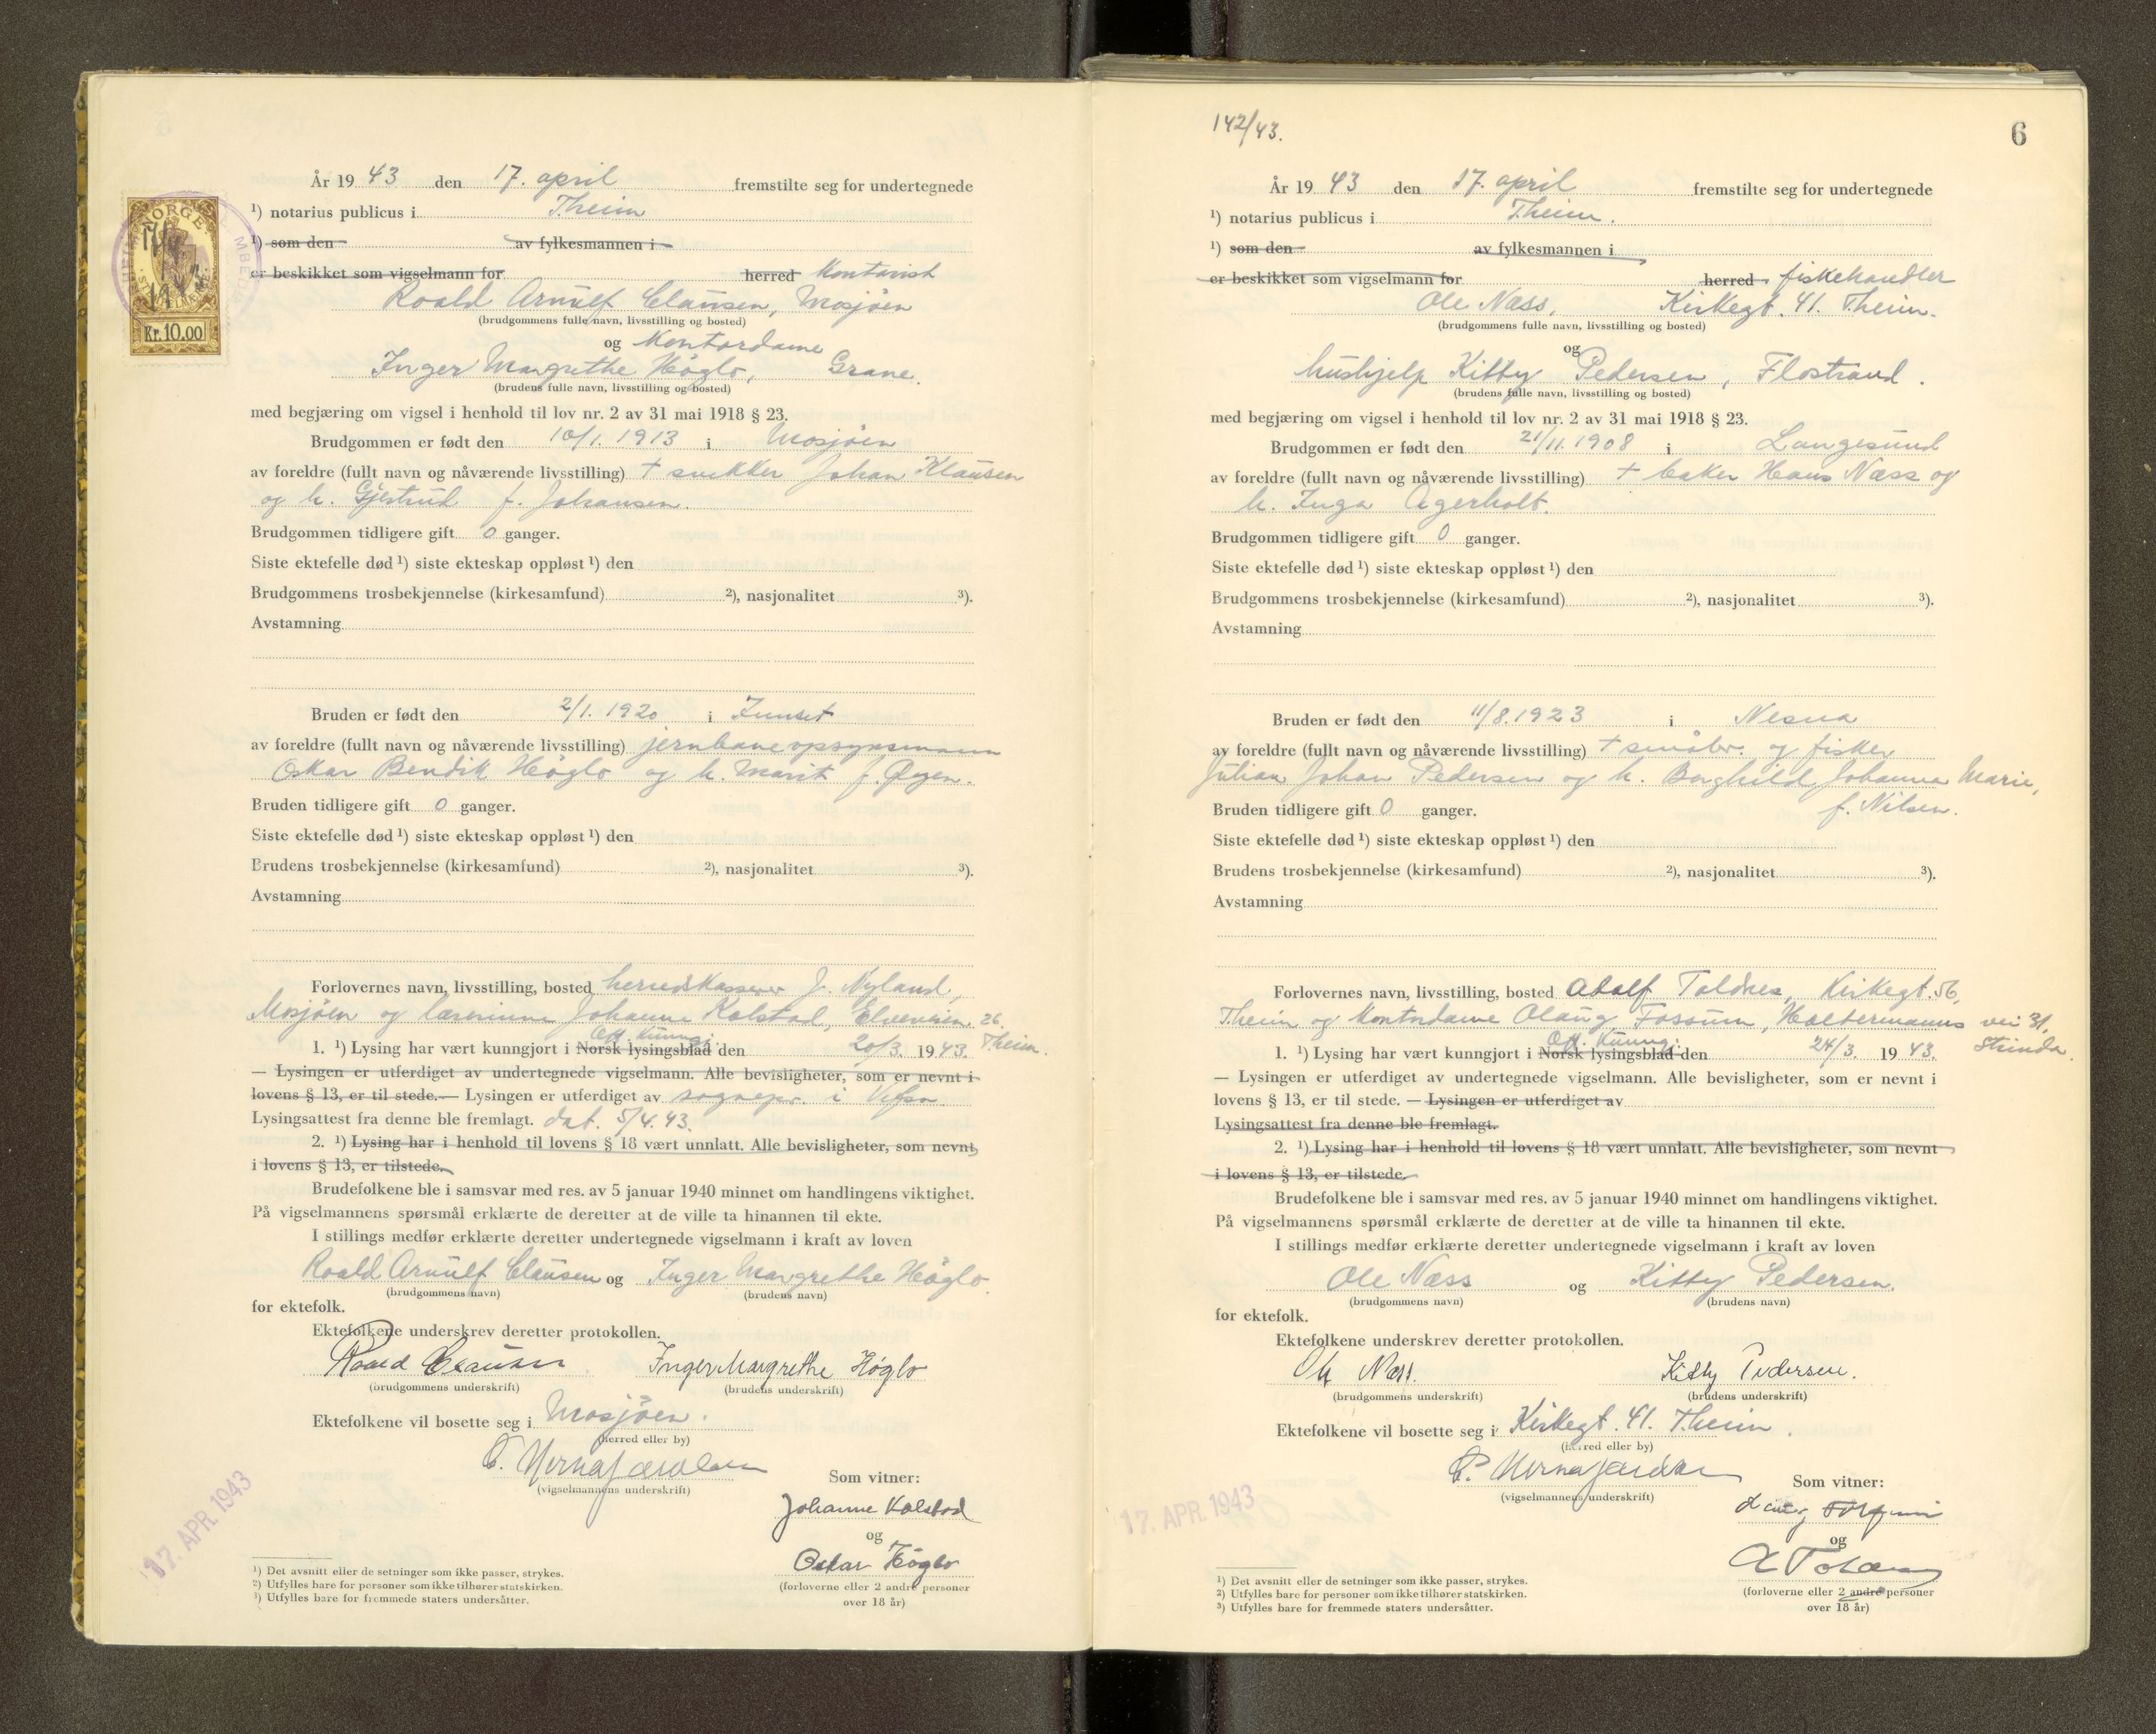 NORGE
17/4
1943
STEMPELMERKE
Kr. 10.00
År 19 43 den 17. april fremstilte seg for undertegnede
¹) notarius publicus i T.heim
¹) som den av fylkesmannen i
er beskikket som vigselmann for herred Kontorist
Roald Arnulf Clausen, Mosjöen
(brudgommens fulle navn, livsstilling og bosted)
og Kontordame
Inger Margrethe Höglo, Grane.
(brudens fulle navn, livsstilling og bosted)
med begjæring om vigsel i henhold til lov nr. 2 av 31 mai 1918 § 23.
Brudgommen er født den 10/1. 1913 i Mosjöen
av foreldre (fullt navn og nåværende livsstilling) + snekker Johan Klausen
og h. Gjertrud f. Johansen.
Brudgommen tidligere gift 0 ganger.
Siste ektefelle død ¹) siste ekteskap oppløst ¹) den
Brudgommens trosbekjennelse (kirkesamfund) ²), nasjonalitet ³).
Avstamning
Bruden er født den 2/1. 1920 i Innset
av foreldre (fullt navn og nåværende livsstilling) jernbaneopsynsmann
Oskar Bendik Höglo og h. Marit f. Øyen.
Bruden tidligere gift 0 ganger.
Siste ektefelle død ¹) siste ekteskap oppløst ¹) den
Brudens trosbekjennelse (kirkesamfund) ²), nasjonalitet ³).
Avstamning
Forlovernes navn, livsstilling, bosted herredskasserer J. Nyland,
Mosjöen og lærerinne Johanne Kolstad, Elveveien 26.
T.heim.
Off. Kunngj.
1. ¹) Lysing har vært kunngjort i Norsk lysingsblad den 20/3. 1943.
— Lysingen er utferdiget av undertegnede vigselmann. Alle bevisligheter, som er nevnt i
lovens § 13, er til stede. — Lysingen er utferdiget av sognepr. i Vefsn
Lysingsattest fra denne ble fremlagt. dat. 5/4. 43.
2. ¹) Lysing har i henhold til lovens § 18 vært unnlatt. Alle bevisligheter, som nevnt,
i lovens § 13, er tilstede.
Brudefolkene ble i samsvar med res. av 5 januar 1940 minnet om handlingens viktighet.
På vigselmannens spørsmål erklærte de deretter at de ville ta hinannen til ekte.
I stillings medfør erklærte deretter undertegnede vigselmann i kraft av loven
Roald Arnulf Clausen og Inger Margrethe Höglo.
(brudgommens navn) (brudens navn)
for ektefolk.
Ektefolkene underskrev deretter protokollen.
Roald Clausen Inger Margrethe Höglo
(brudgommens underskrift) (brudens underskrift)
Ektefolkene vil bosette seg i Mosjöen.
(herred eller by)
(vigselmannens underskrift)
Som vitner:
Johanne Kolstad
og
Oskar Höglo
(forloverne eller 2 andre personer
over 18 år)
17. APR. 1943
¹) Det avsnitt eller de setninger som ikke passer, strykes.
²) Utfylles bare for personer som ikke tilhører statskirken.
³) Utfylles bare for fremmede staters undersåtter.
142/43.
6
År 19 43 den 17. april fremstilte seg for undertegnede
¹) notarius publicus i T.heim.
¹) som den av fylkesmannen i
er beskikket som vigselmann for herred fiskehandler
Ole Næss, Kirkegt. 41. T.heim.
(brudgommens fulle navn, livsstilling og bosted)
og
hushjelp Kitty Pedersen, Flostrand.
(brudens fulle navn, livsstilling og bosted)
med begjæring om vigsel i henhold til lov nr. 2 av 31 mai 1918 § 23.
Brudgommen er født den 21/11. 1908 i Langesund
av foreldre (fullt navn og nåværende livsstilling) + baker Hans Næss og
h. Inga Agerholt.
Brudgommen tidligere gift 0 ganger.
Siste ektefelle død ¹) siste ekteskap oppløst ¹) den
Brudgommens trosbekjennelse (kirkesamfund) ²), nasjonalitet ³).
Avstamning
Bruden er født den 11/8. 1923 i Nesna
av foreldre (fullt navn og nåværende livsstilling) + småbr. og fisker
Julian Johan Pedersen og h. Borghild Johanna Marie,
f. Nilsen.
Bruden tidligere gift 0 ganger.
Siste ektefelle død ¹) siste ekteskap oppløst ¹) den
Brudens trosbekjennelse (kirkesamfund) ²), nasjonalitet ³).
Avstamning
Forlovernes navn, livsstilling, bosted Adolf Toldnes, Kirkegt. 56,
T.heim og Kontordame Olaug Fossum, Holtermanns vei 31,
Strinda.
Off. Kunngj.
1. ¹) Lysing har vært kunngjort i Norsk lysingsblad den 24/3. 1943.
— Lysingen er utferdiget av undertegnede vigselmann. Alle bevisligheter, som er nevnt i
lovens § 13, er til stede. — Lysingen er utferdiget av
Lysingsattest fra denne ble fremlagt.
2. ¹) Lysing har i henhold til lovens § 18 vært unnlatt. Alle bevisligheter, som nevnt
i lovens § 13, er tilstede.
Brudefolkene ble i samsvar med res. av 5 januar 1940 minnet om handlingens viktighet.
På vigselmannens spørsmål erklærte de deretter at de ville ta hinannen til ekte.
I stillings medfør erklærte deretter undertegnede vigselmann i kraft av loven
Ole Næss og Kitty Pedersen.
(brudgommens navn) (brudens navn)
for ektefolk.
Ektefolkene underskrev deretter protokollen.
Ole Næss. Kitty Pedersen.
(brudgommens underskrift) (brudens underskrift)
Ektefolkene vil bosette seg i Kirkegt. 41. T.heim.
(herred eller by)
(vigselmannens underskrift)
Som vitner:
Olaug Fossum
og
A Toldnes
(forloverne eller 2 andre personer
over 18 år)
17. APR. 1943
¹) Det avsnitt eller de setninger som ikke passer, strykes.
²) Utfylles bare for personer som ikke tilhører statskirken.
³) Utfylles bare for fremmede staters undersåtter.